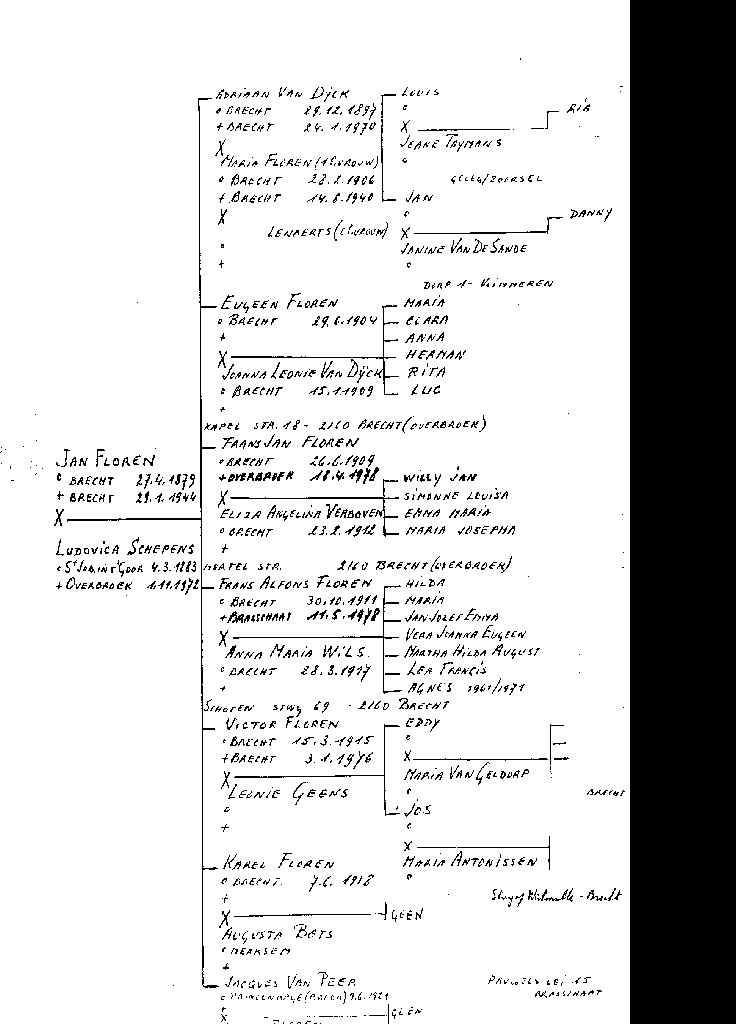 JAN FLOREN
° BRECHT 27.4.1879
+ BRECHT 29.1.1944
X
LUDOVICA SCHEPENS
° ST JOB IN T' GOOR 4.3.1883
+ OVERBROEK 1.11.1972
ADRIAAN VAN DIJCK
° BRECHT 29.12.1897
+ BRECHT 24.1.1970
X
MARIA FLOREN (1E VROUW)
° BRECHT 28.2.1906
+ BRECHT 14.8.1940
X
LENAERTS (2E VROUW)
°
+
LOUIS
°
X
JEANE TAYMANS
°
RIA
JAN
°
X
JANINE VAN DE SANDE
°
DANNY
DORP 1 - VLIMMEREN
EUGEEN FLOREN
° BRECHT 29.6.1904
+
X
JOANNA LEONIE VAN DIJCK
° BRECHT 15.1.1909
+
MARIA
CLARA
ANNA
HERMAN
RITA
LUC
KAPEL STR. 18 - 2160 BRECHT (OVERBROEK)
FRANS JAN FLOREN
° BRECHT 26.6.1909
+ OVERBROEK 18.4.1978
X
ELIZA ANGELINA VERBOVEN
° BRECHT 23.2.1912
+
WILLY JAN
SIMONNE LOUISA
EMMA MARIA
MARIA JOSEPHA
STR. 2160 BRECHT (OVERBROEK)
FRANS ALFONS FLOREN
° BRECHT 30.10.1911
+ BRASSCHAAT 11.5.1978
X
ANNA MARIA WILS.
° BRECHT 28.3.1917
+
HILDA
MARIA
JAN JOZEF EMMA
VERA JOANNA EUGEEN
MARTHA HILDA AUGUST
LEA FRANCIS
AGNES 1961/1971
STWG 69 - 2160 BRECHT
VICTOR FLOREN
° BRECHT 15.3.1915
+ BRECHT 3.1.1976
X
LEONIE GEENS
°
+
EDDY
°
X
MARIA VAN GELDORP
°
BRECHT
JOS
°
X
MARIA ANTONISSEN
°
- Brecht
KAREL FLOREN
° BRECHT. 7.6.1918
+
X
GEEN
AUGUSTA BETS
° MERKSEM
+
LEI 15
BRASSCHAAT
JACQUES VAN PEER
X
GEEN
FLOREN